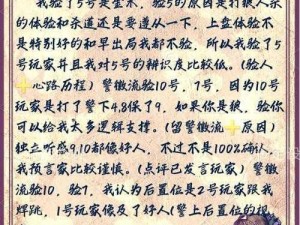 我验了5号是金水，验5的原因是打狼人杀
的体验和杀道还是要遵从一下，上盘体验不
是特别好的和早出局我都不验，所以我验了5
号玩家并且我对5号的辩识度比较低。（验人
心路历程）警徽流验10号，1号，因为10号
玩家是打了警下4.8保了9。如果你是狼，验你
可以给我太多逻辑支撑。（留警徽流 原因）
独立听感9,10都像好人，不过不是100%确认，
我预言家比较谨慎。（点评已发言玩家）警徽
流验10，验1，我认为后置位是2号玩家跟我
焊跳，1号玩家像及了好人（警上后置位的视